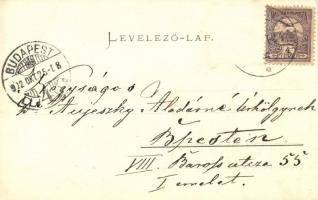 LEVELEZŐ-LAP.
BUDAPEST
902 OKT 25
Nagyságos
Dr Aujeszky Aladárné úrhölgynek
Bpesten
VIII. Baross utcza 55
I emelet.